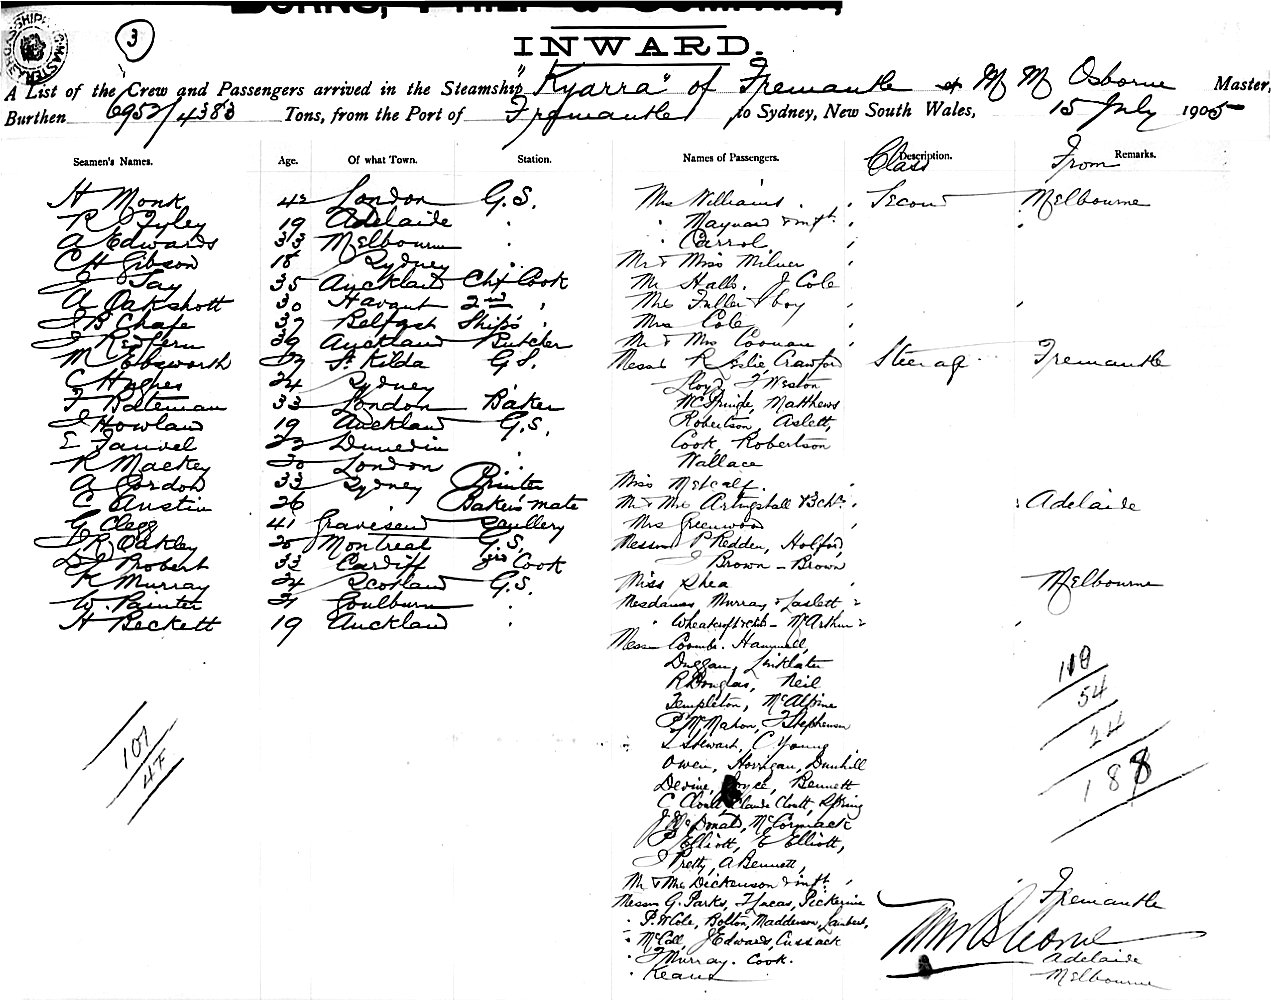 BURNS, PHILP & COMPANY,
3
INWARD.
A List of the Crew and Passengers arrived in the Steamship "Kyarra" of Fremantle M M Osborne Master,
Burthen 6952/4383 Tons, from the Port of Fremantle to Sydney, New South Wales, 15 July 1905
Seamen's Names. Age. Of what Town. Station. Names of Passengers. Description. Class Remarks. From
H Monk 42 London G.S. Mrs Williams Second Melbourne
R Tyley 19 Adelaide " Maynard & inft
A Edwards 33 Melbourne " Carrol
C H Gibson 18 Sydney " Mr & Miss Milner
J Tay 35 Auckland Chf Cook Mr Halls. J Cole
A Oakshott 30 Havant 2nd " Mrs Fuller & boy
J B Chafe 37 Belfast Ship's " Mrs Cole
J Redfern 39 Auckland Butcher Mr & Mrs Coonan
M Ebsworth 23 St Kilda G.S. Messrs R Leslie, Crawford Steerage Fremantle
C Hughes 24 Sydney " Lloyd, F Weston
F Bateman 33 London Baker McPrinde, Matthews
J Howlan 19 Auckland G.S. Robertson, Aslett,
E Fauvel 23 Dunedin " Cook, Robertson
R Mackey 20 London " Wallace
A Gordon 33 Sydney Printer Miss Metcalf.
C Austin 26 Baker's mate Mr & Mrs Artingshall & 3 chn Adelaide
G Clegg 41 Gravesend Scullery Mrs Greenwood
J R Oakley 20 Montreal G.S. Messrs P Redden, Holford,
D J Probert 33 Cardiff 3rd Cook J Brown - Brown
R Murray 24 Scotland G.S. Miss Shea Melbourne
W. Painter 21 Goulburn " Mesdames Murray & Laslett
H Beckett 19 Auckland " Wheatcroft & chld - McArthur
Messrs Coombe. Hammell,
Duggan, Linklater
R Douglas, Neil
Templeton, McAlpine
P McMahon, F Stephenson
L Stewart, C Young
Owen, Horrigan, Dunhill
Devine, Joyce, Bennett
C Cloutt, Claude Cloutt, Spring
J McDonald, McCormack
P Elliott, E Elliott,
J Pretty, A Bennett,
Mr & Mrs Dickenson & inft Fremantle
Messrs G. Parks, F Lucas, Pickerine
" P. W Cole, Bolton, Madderson, Lambert,
" McColl, J Edwards, Cussack
" F Murray. Cook. Adelaide
" Keane Melbourne
107
47
110
54
24
188
MMOsborne